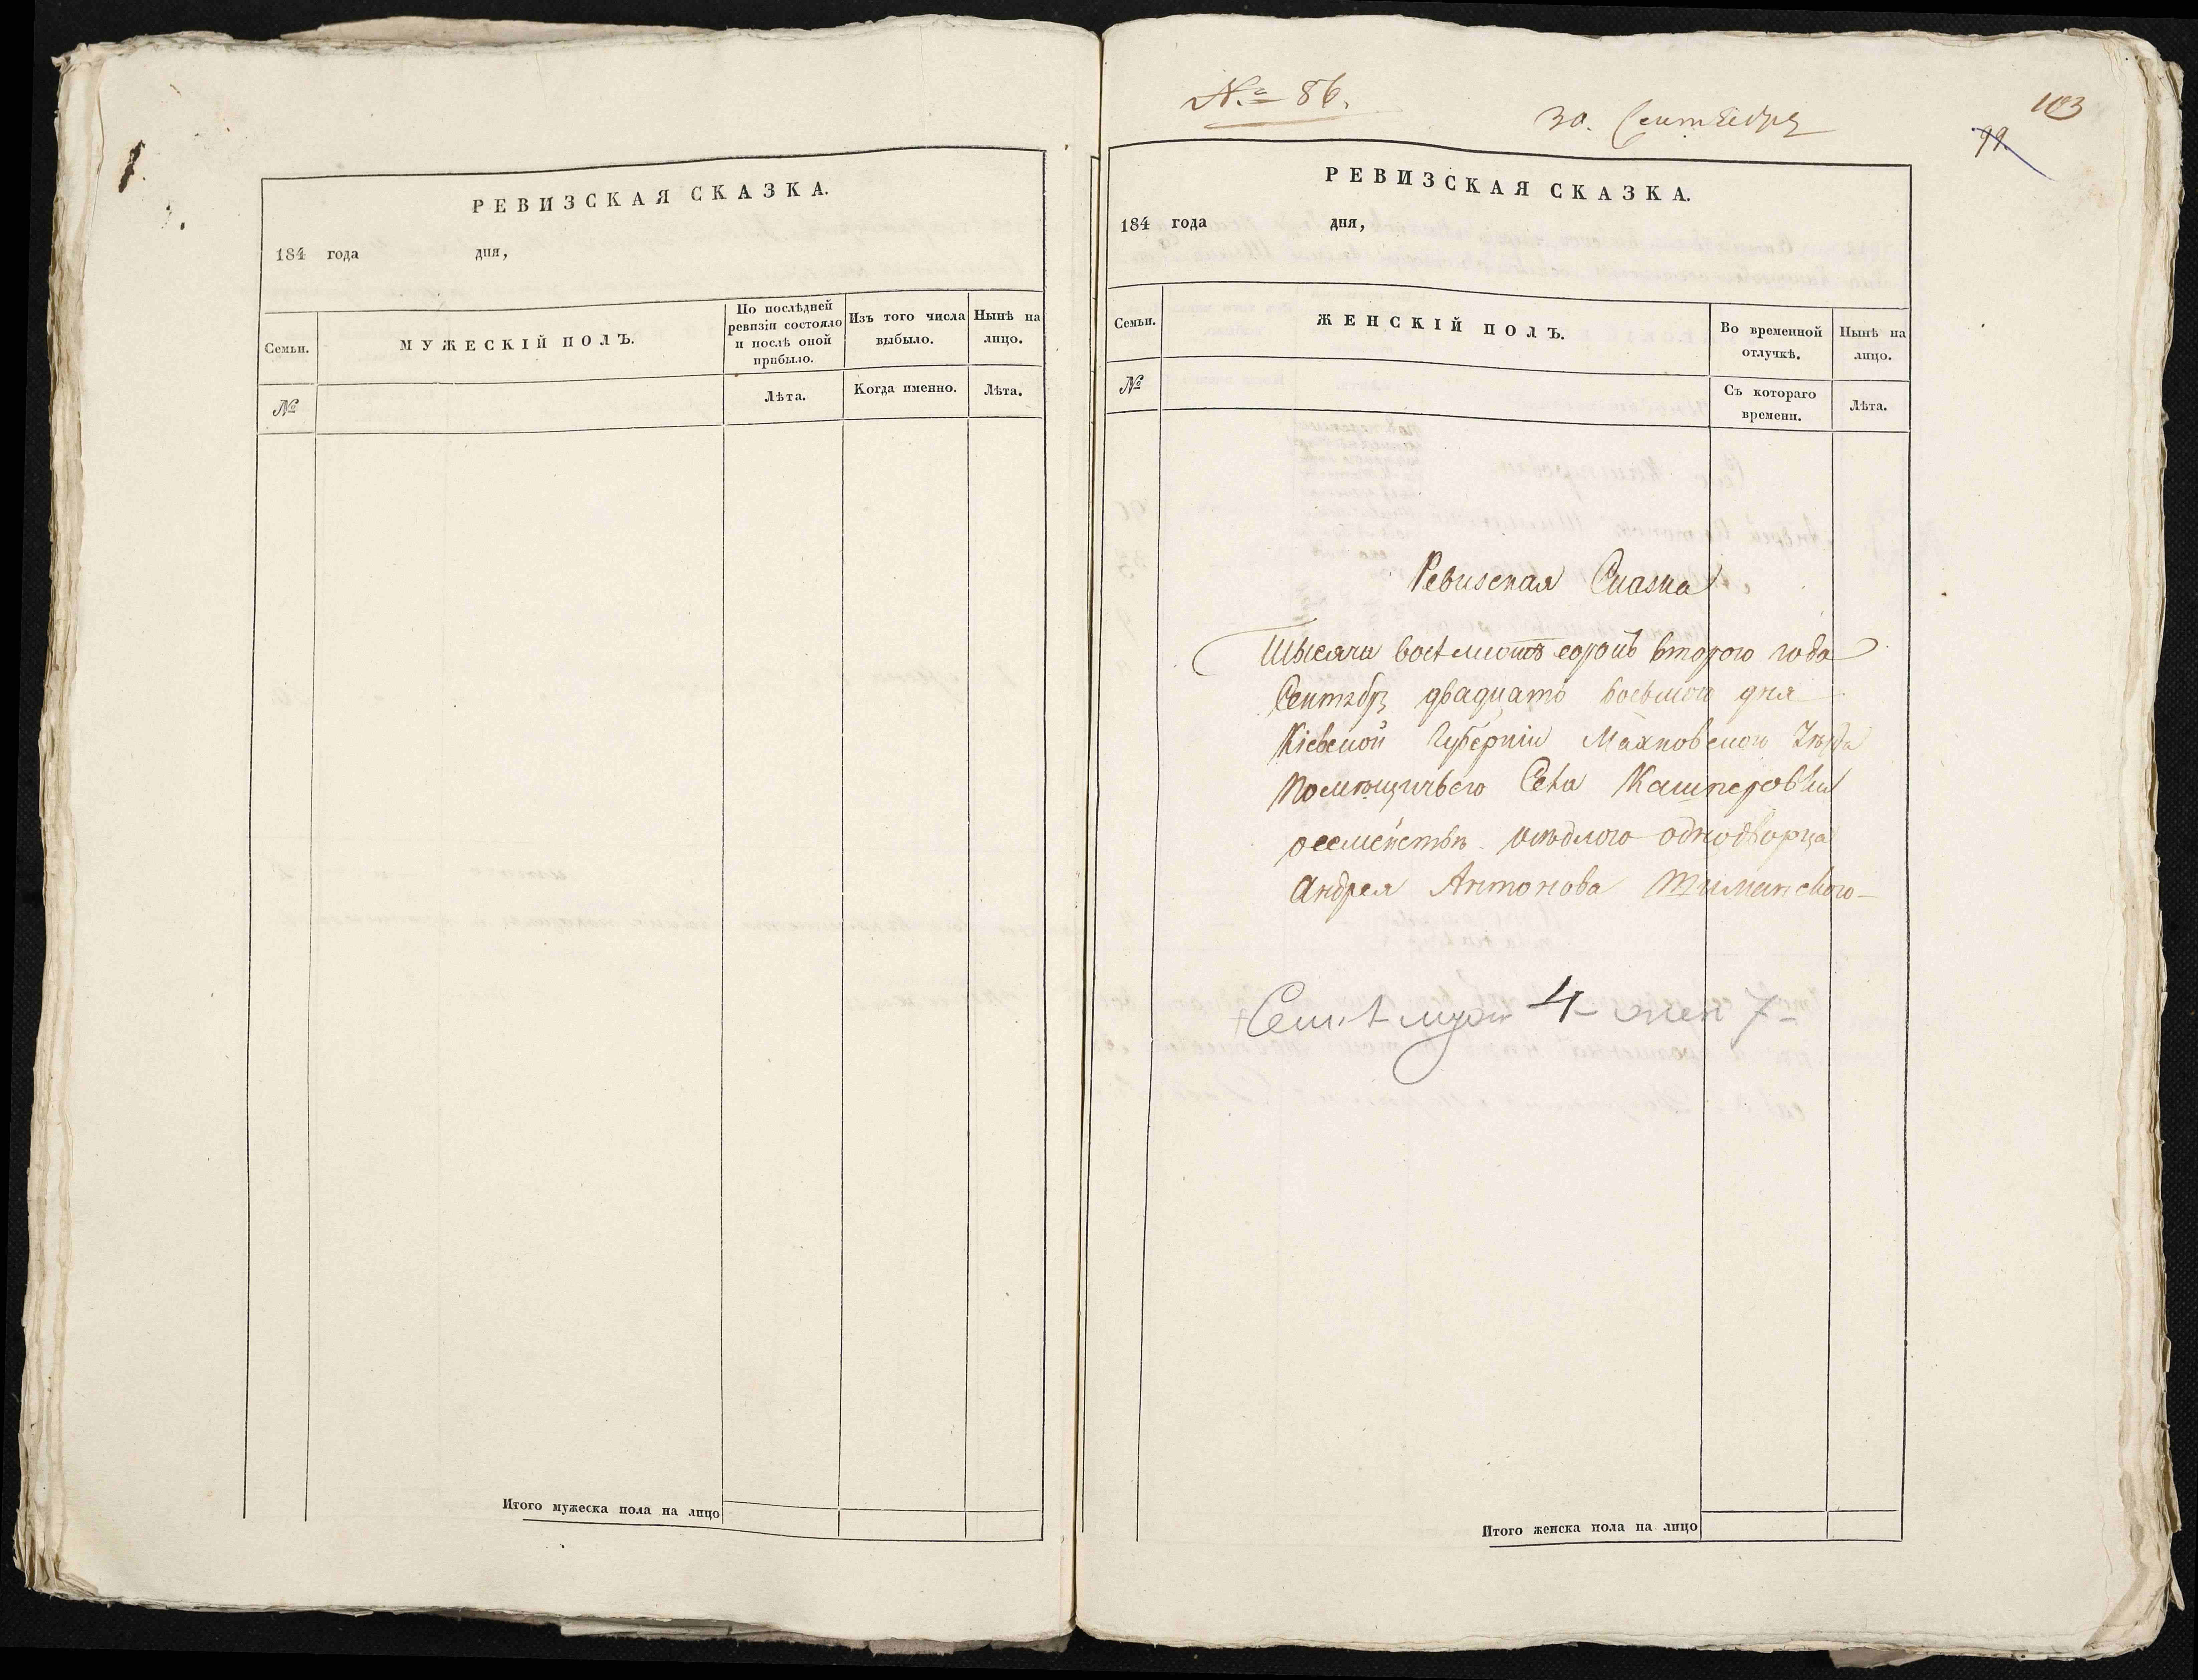 1.
РЕВИЗСКАЯ СКАЗКА.
184 года дня,
Семьи.
МУЖЕСКІЙ ПОЛЪ.
По послѣдней
ревизіи состояло
и послѣ оной
прибыло.
Изъ того числа
выбыло.
Нынѣ на
лицо.
№
Лѣта.
Когда именно.
Лѣта.
Итого мужеска пола на лицо
№ 86.
30. Сентября
103
99.
РЕВИЗСКАЯ СКАЗКА.
184 года дня,
Семьи.
ЖЕНСКІЙ ПОЛЪ.
Во временной
отлучкѣ.
Нынѣ на
лицо.
№
Съ котораго
времени.
Лѣта.
Ревизская Сказка
Тысяча восемсотъ сорокъ второго года
Сентября двадцать восьмого дня
Кіевской Губерніи Махновского Уѣзда
Помѣщичьего Села Кашперовки
о семействѣ осѣдлого однодворца
Андрея Антонова
4 7
Итого женска пола на лицо